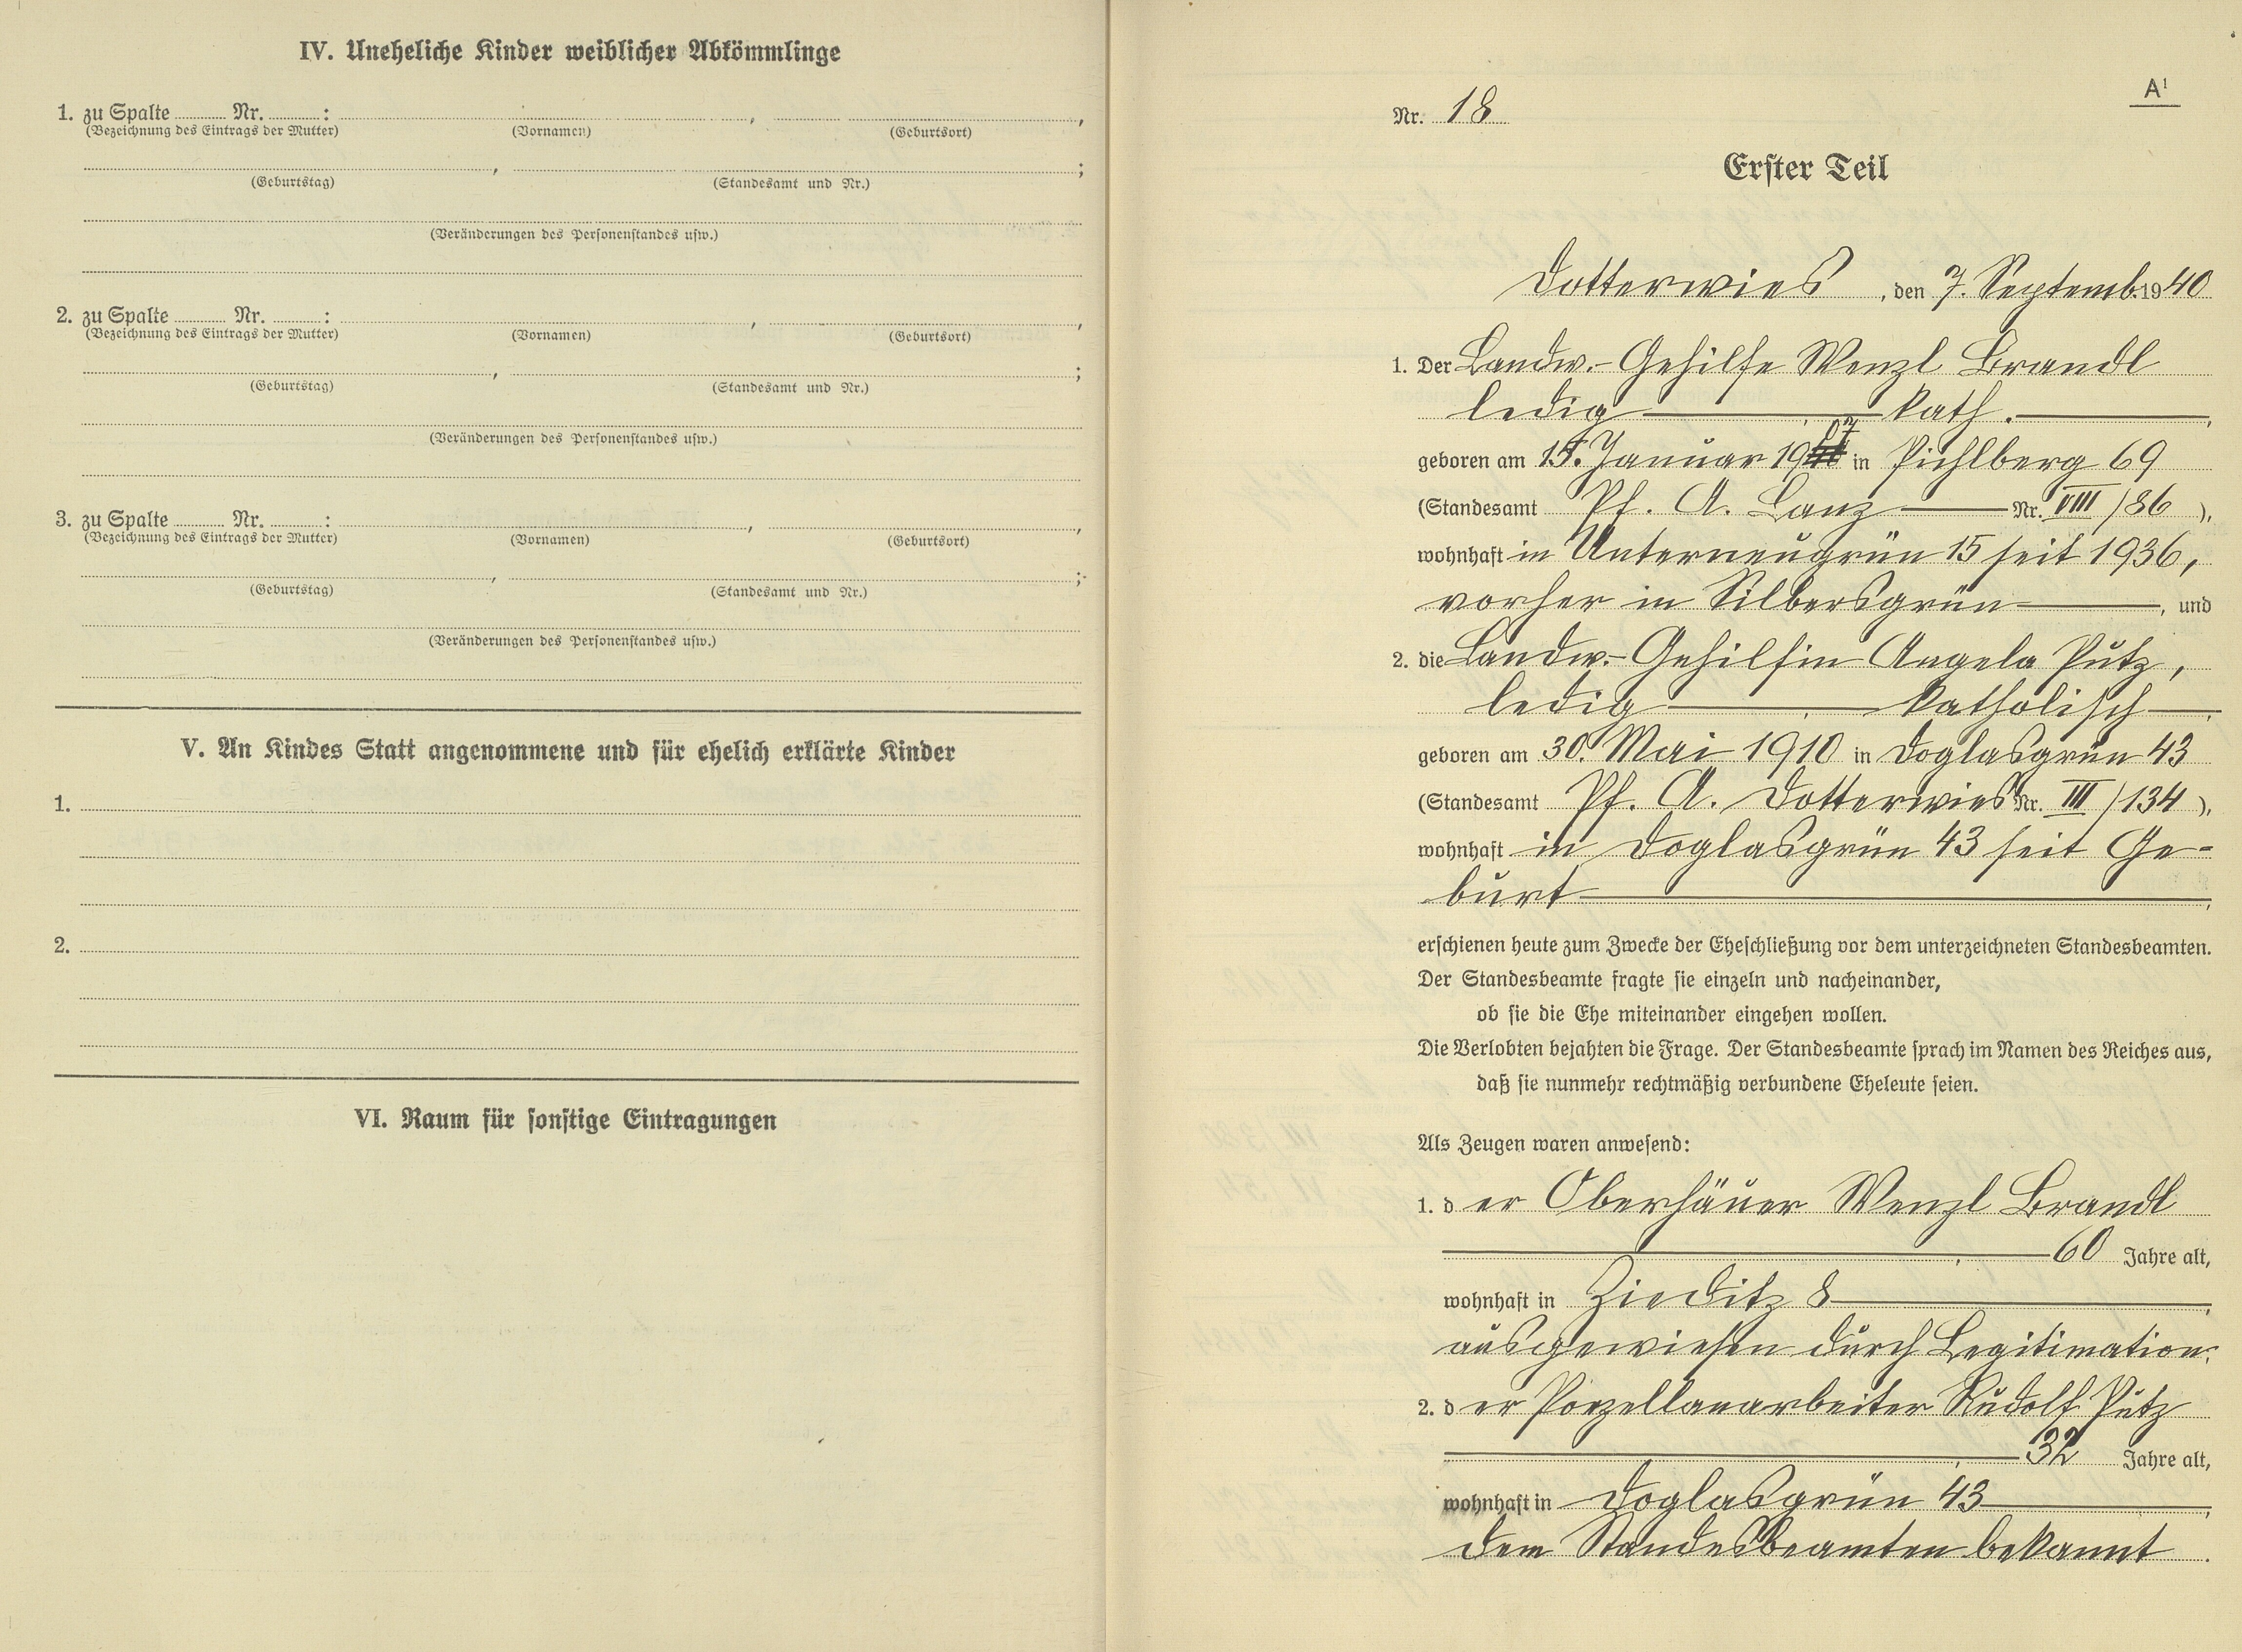 IV. Uneheliche Kinder weiblicher Abkömmlinge
1. zu Spalte ........ Nr. ........ : , ,
(Bezeichnung des Eintrags der Mutter) (Vornamen) (Geburtsort)
, ;
(Geburtstag) (Standesamt und Nr.)
(Veränderungen des Personenstandes usw.)
2. zu Spalte ........ Nr. ........ : , ,
(Bezeichnung des Eintrags der Mutter) (Vornamen) (Geburtsort)
, ;
(Geburtstag) (Standesamt und Nr.)
(Veränderungen des Personenstandes usw.)
3. zu Spalte ........ Nr. ........ : , ,
(Bezeichnung des Eintrags der Mutter) (Vornamen) (Geburtsort)
, ;
(Geburtstag) (Standesamt und Nr.)
(Veränderungen des Personenstandes usw.)
V. An Kindes Statt angenommene und für ehelich erklärte Kinder
1.
2.
VI. Raum für sonstige Eintragungen
A¹
Nr. 18
Erster Teil
Dotterwies, den 7. Septemb. 1940
1. Der Landw.-Gehilfe Wenzl Brandl
ledig, kath.,
geboren am 15. Januar 1907 in Pichlberg 69
(Standesamt Pf. A. Lanz Nr. VIII/86),
wohnhaft in Unterneugrün 15 seit 1936,
vorher in Silbersgrün, und
2. die Landw.-Gehilfin Angela Putz,
ledig, katholisch,
geboren am 30. Mai 1910 in Doglasgrün 43
(Standesamt Pf. A. Dotterwies Nr. III/134),
wohnhaft in Doglasgrün 43 seit Ge-
burt,
erschienen heute zum Zwecke der Eheschließung vor dem unterzeichneten Standesbeamten.
Der Standesbeamte fragte sie einzeln und nacheinander,
ob sie die Ehe miteinander eingehen wollen.
Die Verlobten bejahten die Frage. Der Standesbeamte sprach im Namen des Reiches aus,
daß sie nunmehr rechtmäßig verbundene Eheleute seien.
Als Zeugen waren anwesend:
1. der Oberhäuer Wenzl Brandl
, 60 Jahre alt,
wohnhaft in Zieditz 8,
ausgewiesen durch Legitimation.
2. der Porzellanarbeiter Rudolf Putz
, 32 Jahre alt,
wohnhaft in Doglasgrün 43,
dem Standesbeamten bekannt.